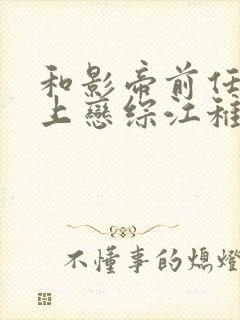 和影帝前任
上戀综江稚
不懂事的熄燈